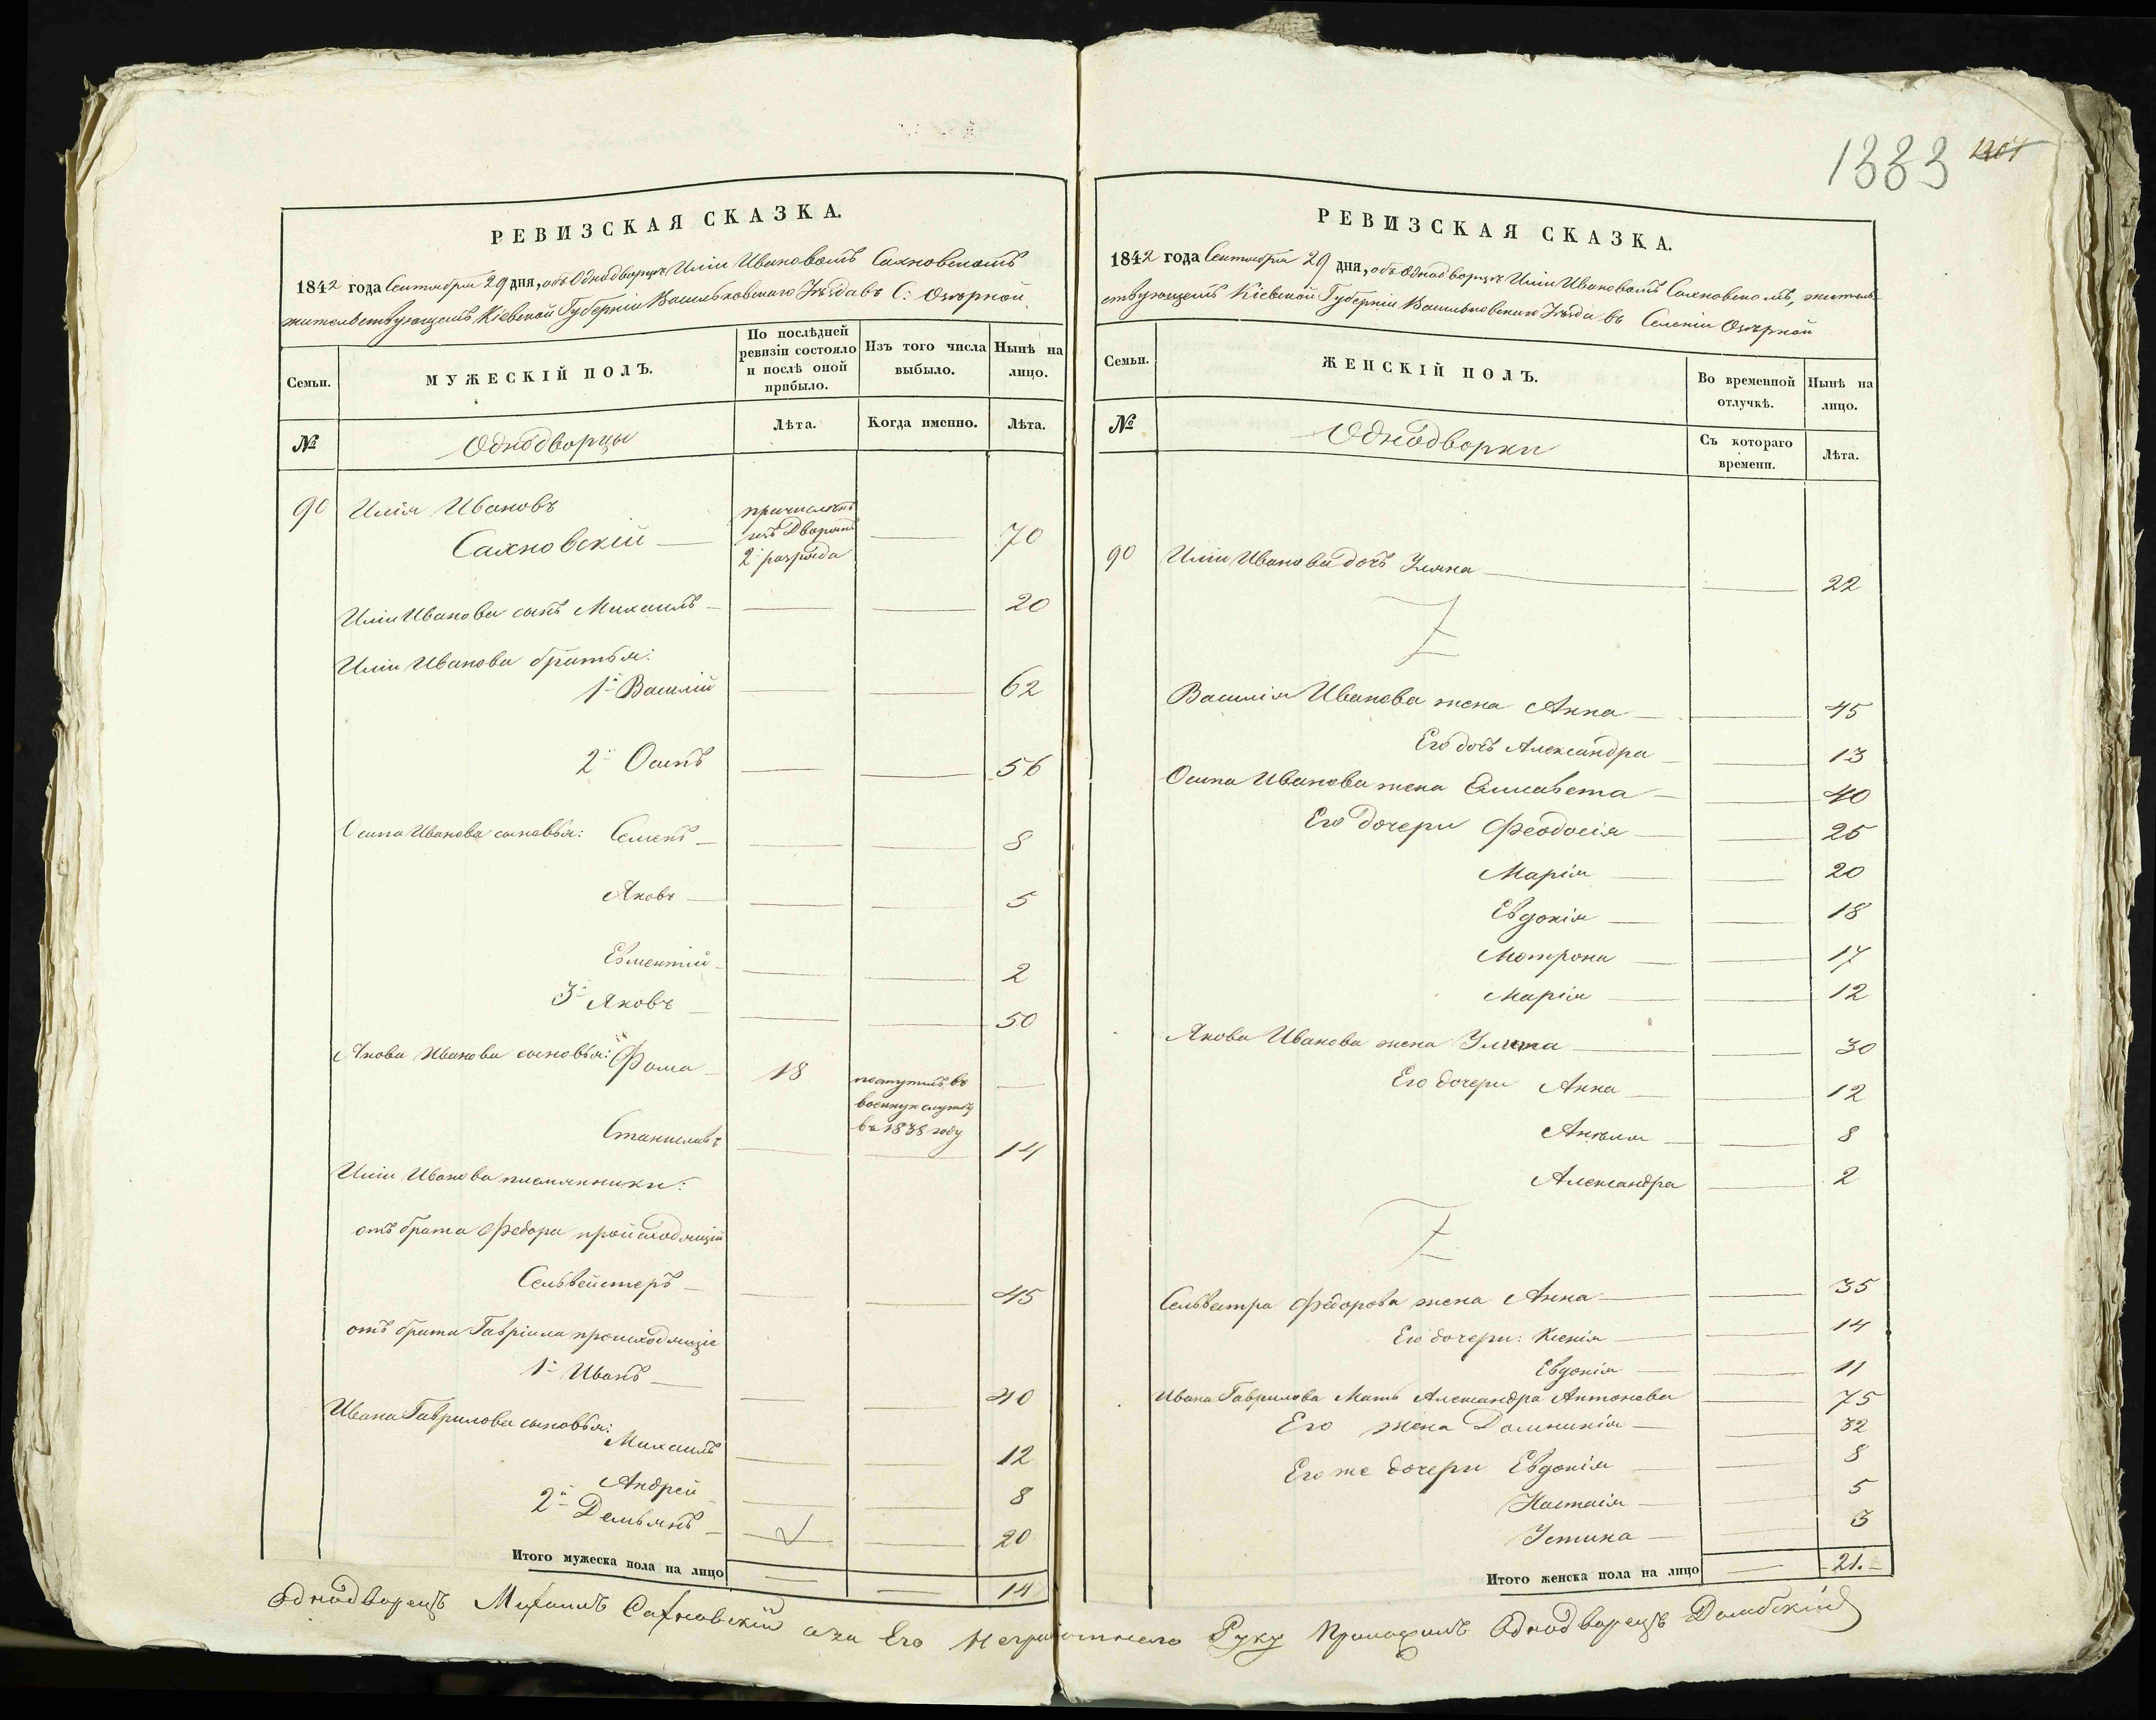 1333 1204
РЕВИЗСКАЯ СКАЗКА.
1842 года Сентября 29 дня, объ Однодворце Иліи Ивановомъ Сахновскомъ
жительствующемъ Кіевской Губерніи Васильковского Уѣзда въ С: Озѣрной
Семьи.
МУЖЕСКІЙ ПОЛЪ.
По послѣдней ревизіи состояло и послѣ оной прибыло.
Изъ того числа выбыло.
Нынѣ на лицо.
№
Однодворцы
Лѣта.
Когда именно.
Лѣта.
90 Илія Ивановъ
Сахновскій — причисленъ изъ Дворянъ 2 разряда — 70
Иліи Иванова сынъ Михаилъ — 20
Иліи Иванова братья:
1й Василій 62
2й Осипъ 56
Осипа Иванова сыновья: Семенъ — 8
Яковъ — 5
Евментій — 2
3й Яковъ — 50
Якова Иванова сыновья: Фома — 18 поступилъ въ военную службу въ 1838 году —
Станиславъ 14
Иліи Иванова племянники:
отъ брата Федора происходящій
Сельвейстеръ — 45
отъ брата Гавріила происходящіе
1й Иванъ — 40
Ивана Гаврилова сыновья:
Михаилъ 12
Андрей 8
2й Демьянъ — 20
Итого мужеска пола на лицо — — 14
РЕВИЗСКАЯ СКАЗКА.
1842 года Сентября 29 дня, объ Однодворце Иліи Ивановомъ Сахновскомъ, житель
ствующемъ Кіевской Губерніи Васильковского Уѣзда въ Селеніи Озѣрной
Семьи.
ЖЕНСКІЙ ПОЛЪ.
Во временной отлучкѣ.
Нынѣ на лицо.
№
Однодворки
Съ котораго времени.
Лѣта.
90 Иліи Иванова дочь Уляна — 22
Василія Иванова жена Анна — 45
Его дочь Александра 13
Осипа Иванова жена Елисавета — 40
Его дочери Феодосія — 25
Марія — 20
Евдокія — 18
Мотрона — 17
Марія — 12
Якова Иванова жена Улита — 30
Его дочери Анна — 12
Анѣля — 8
Александра 2
Сельвестра Федорова жена Анна — 35
Его дочери: Ксенія — 14
Евдокія — 11
Ивана Гаврилова Мать Александра Антонова 75
Его жена Домникія — 32
Его же дочери Евдокія — 8
Настасія — 5
Устина — 3
Итого женска пола на лицо — 21.
Однодворецъ Михаилъ Сахновскій а за Его Неграмотнаго Руку Приложилъ Однодворецъ Домбскій